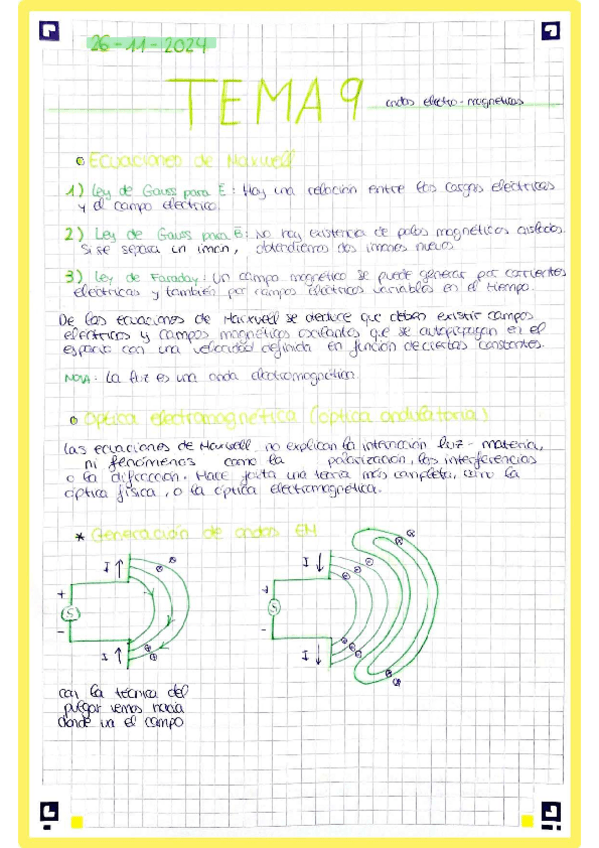 26-11-2024
TEMA 9 ondas electro-magnéticas
Ecuaciones de Maxwell
1) Ley de Gauss para E: Hay una relación entre las cargas eléctricas
y el campo eléctrico.
2) Ley de Gauss para B: No hay existencia de polos magnéticos aislados.
Si se separa un imán, obtendremos dos imanes nuevos
3) Ley de Faraday: Un campo magnético se puede generar por corrientes
eléctricas y también por campos eléctricos variables en el tiempo.
De las ecuaciones de Maxwell se deduce que deben existir campos
eléctricos y campos magnéticos oscilantes que se autopropagan en el
espacio con una velocidad definida en función de ciertas constantes.
NOTA: La luz es una onda electromagnética.
Óptica electromagnética (óptica ondulatoria)
Las ecuaciones de Maxwell no explican la interacción luz-materia,
ni fenómenos como la polarización, las interferencias
o la difracción. Hace falta una teoría más completa, como la
óptica física, o la óptica electromagnética.
* Generación de ondas EM
I ↑
I ↓
+
S
-
+
S
-
I ↑
I ↓
con la técnica del
pulgar vemos hacia
donde va el campo